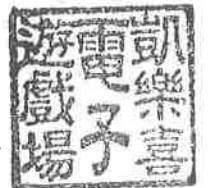 凱樂喜
電子
遊戲場